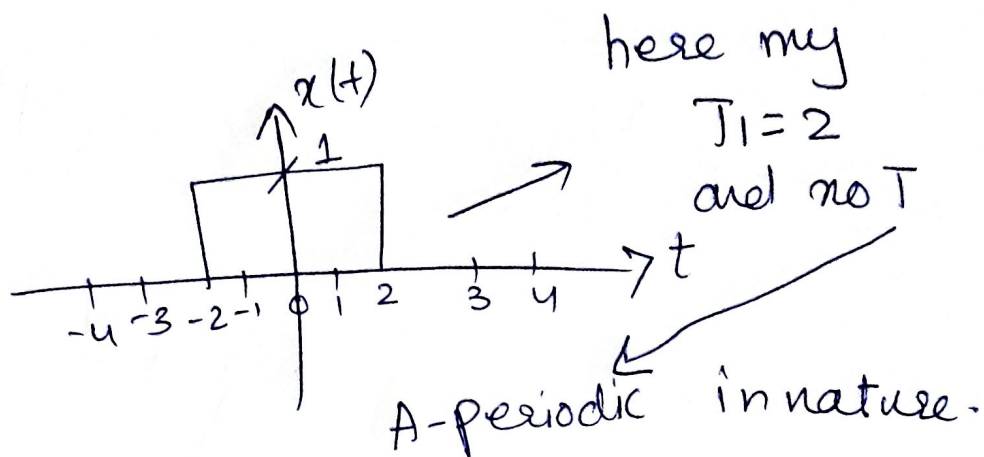 here my
T1 = 2
and no T
x(t)
1
t
-4 -3 -2 -1 0 1 2 3 4
A-periodic in nature.